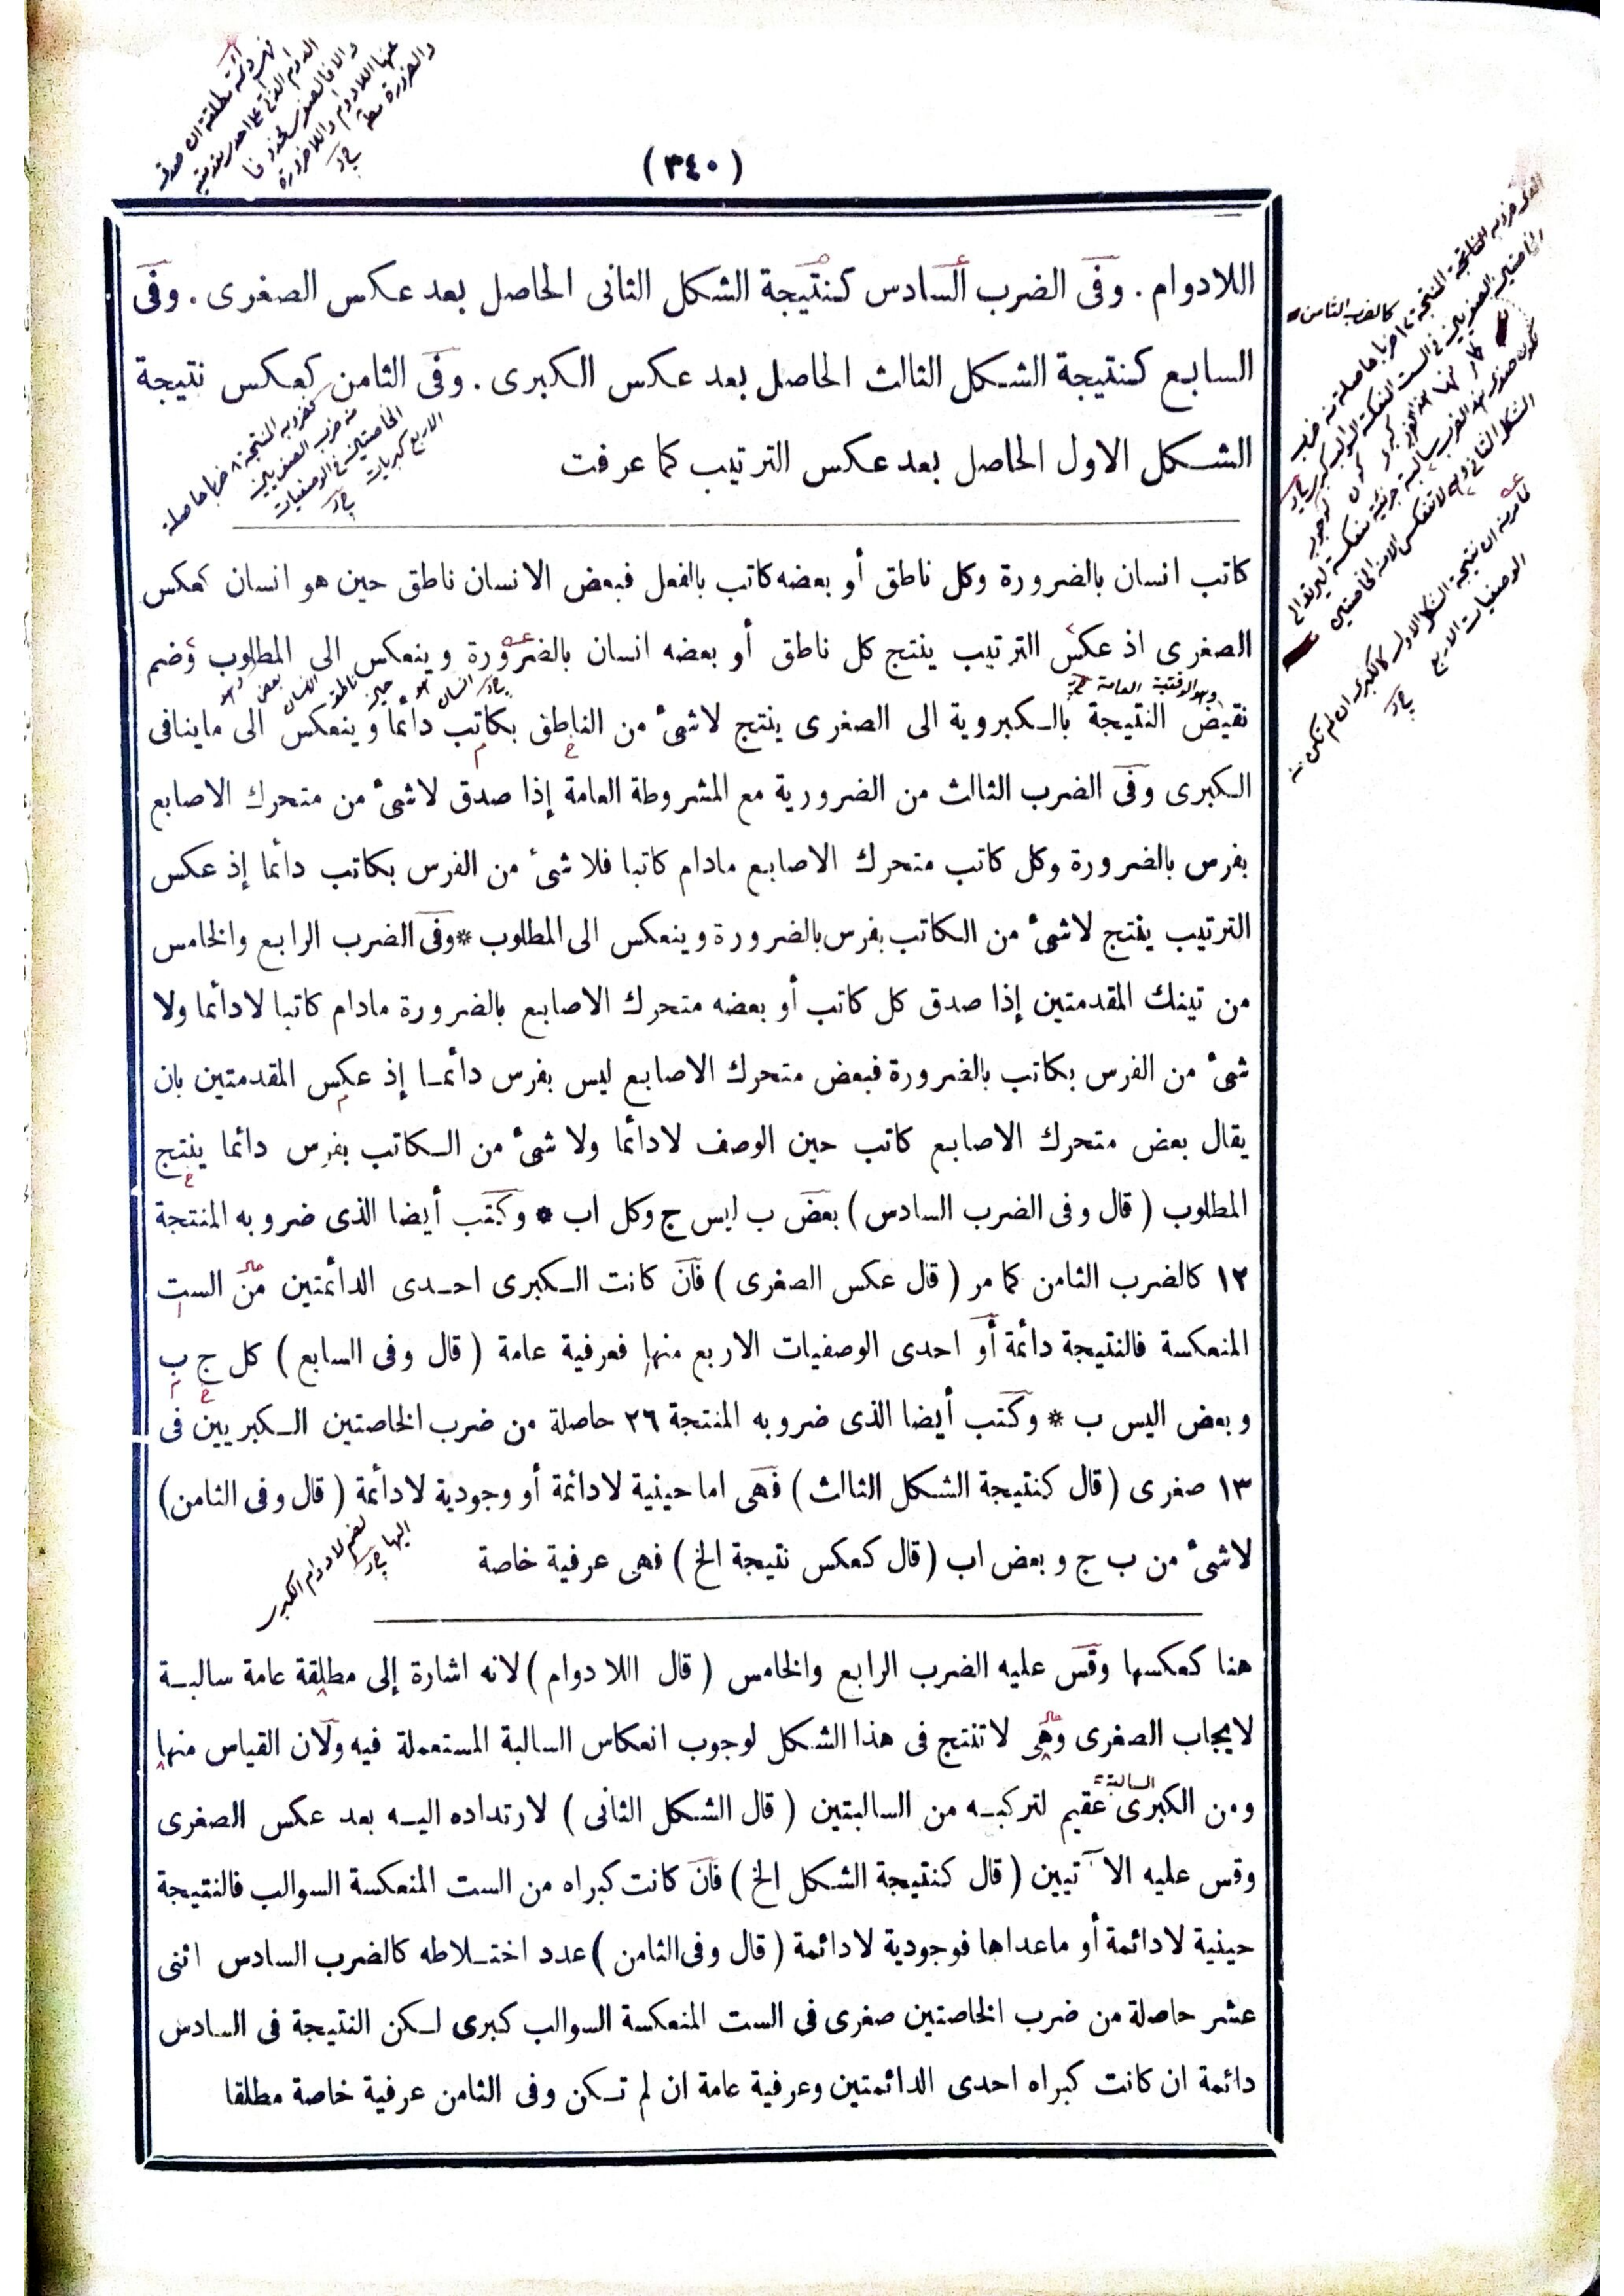 (٣٤٠)
اللادوام . وفى الضرب السادس كنتيجة الشكل الثانى الحاصل بعد عكس الصغرى . وفى
السابع كنتيجة الشكل الثالث الحاصل بعد عكس الكبرى . وفى الثامن كعكس نتيجة
الشكل الاول الحاصل بعد عكس الترتيب كما عرفت
كاتب انسان بالضرورة وكل ناطق أو بعضه كاتب بالفعل فبعض الانسان ناطق حين هو انسان كعكس
الصغرى اذ عكس الترتيب ينتج كل ناطق أو بعضه انسان بالضرورة وينعكس الى المطلوب وضم
نقيض النتيجة بالكبروية الى الصغرى ينتج لاشئ من الناطق بكاتب دائما وينعكس الى ماينافى
الكبرى وفى الضرب الثالث من الضرورية مع المشروطة العامة إذا صدق لاشئ من متحرك الاصابع
بفرس بالضرورة وكل كاتب متحرك الاصابع مادام كاتبا فلا شئ من الفرس بكاتب دائما إذ عكس
الترتيب ينتج لاشئ من الكاتب بفرس بالضرورة وينعكس الى المطلوب * وفى الضرب الرابع والخامس
من تينك المقدمتين إذا صدق كل كاتب أو بعضه متحرك الاصابع بالضرورة مادام كاتبا لادائما ولا
شئ من الفرس بكاتب بالضرورة فبعض متحرك الاصابع ليس بفرس دائما إذ عكس المقدمتين بان
يقال بعض متحرك الاصابع كاتب حين الوصف لادائما ولا شئ من الكاتب بفرس دائما ينتج
المطلوب ( قال وفى الضرب السادس ) بعض ب ليس ج وكل اب * وكتب أيضا الذى ضروبه المنتجة
١٢ كالضرب الثامن كما مر ( قال عكس الصغرى ) فان كانت الكبرى احدى الدائمتين من الست
المنعكسة فالنتيجة دائمة أو احدى الوصفيات الاربع منها فعرفية عامة ( قال وفى السابع ) كل ج ب
وبعض اليس ب * وكتب أيضا الذى ضروبه المنتجة ٢٦ حاصلة من ضرب الخاصتين الكبريين فى
١٣ صغرى ( قال كنتيجة الشكل الثالث ) فهى اما حينية لادائمة أو وجودية لادائمة ( قال وفى الثامن )
لاشئ من ب ج وبعض اب ( قال كعكس نتيجة الخ ) فهى عرفية خاصة
هنا كعكسها وقس عليه الضرب الرابع والخامس ( قال اللادوام ) لانه اشارة إلى مطلقة عامة سالبة
لايجاب الصغرى وهى لاتنتج فى هذا الشكل لوجوب انعكاس السالبة المستعملة فيه ولان القياس منها
ومن الكبرى السالبة عقيم لتركبه من السالبتين ( قال الشكل الثانى ) لارتداده اليه بعد عكس الصغرى
وقس عليه الآتيين ( قال كنتيجة الشكل الخ ) فان كانت كبراه من الست المنعكسة السوالب فالنتيجة
حينية لادائمة أو ماعداها فوجودية لادائمة ( قال وفى الثامن ) عدد اختلاطه كالضرب السادس اثنى
عشر حاصلة من ضرب الخاصتين صغرى فى الست المنعكسة السوالب كبرى لكن النتيجة فى السادس
دائمة ان كانت كبراه احدى الدائمتين وعرفية عامة ان لم تكن وفى الثامن عرفية خاصة مطلقا
كالضرب الثامن
وهو الوقتية العامة
لضم لادوام الكبرى
اليها